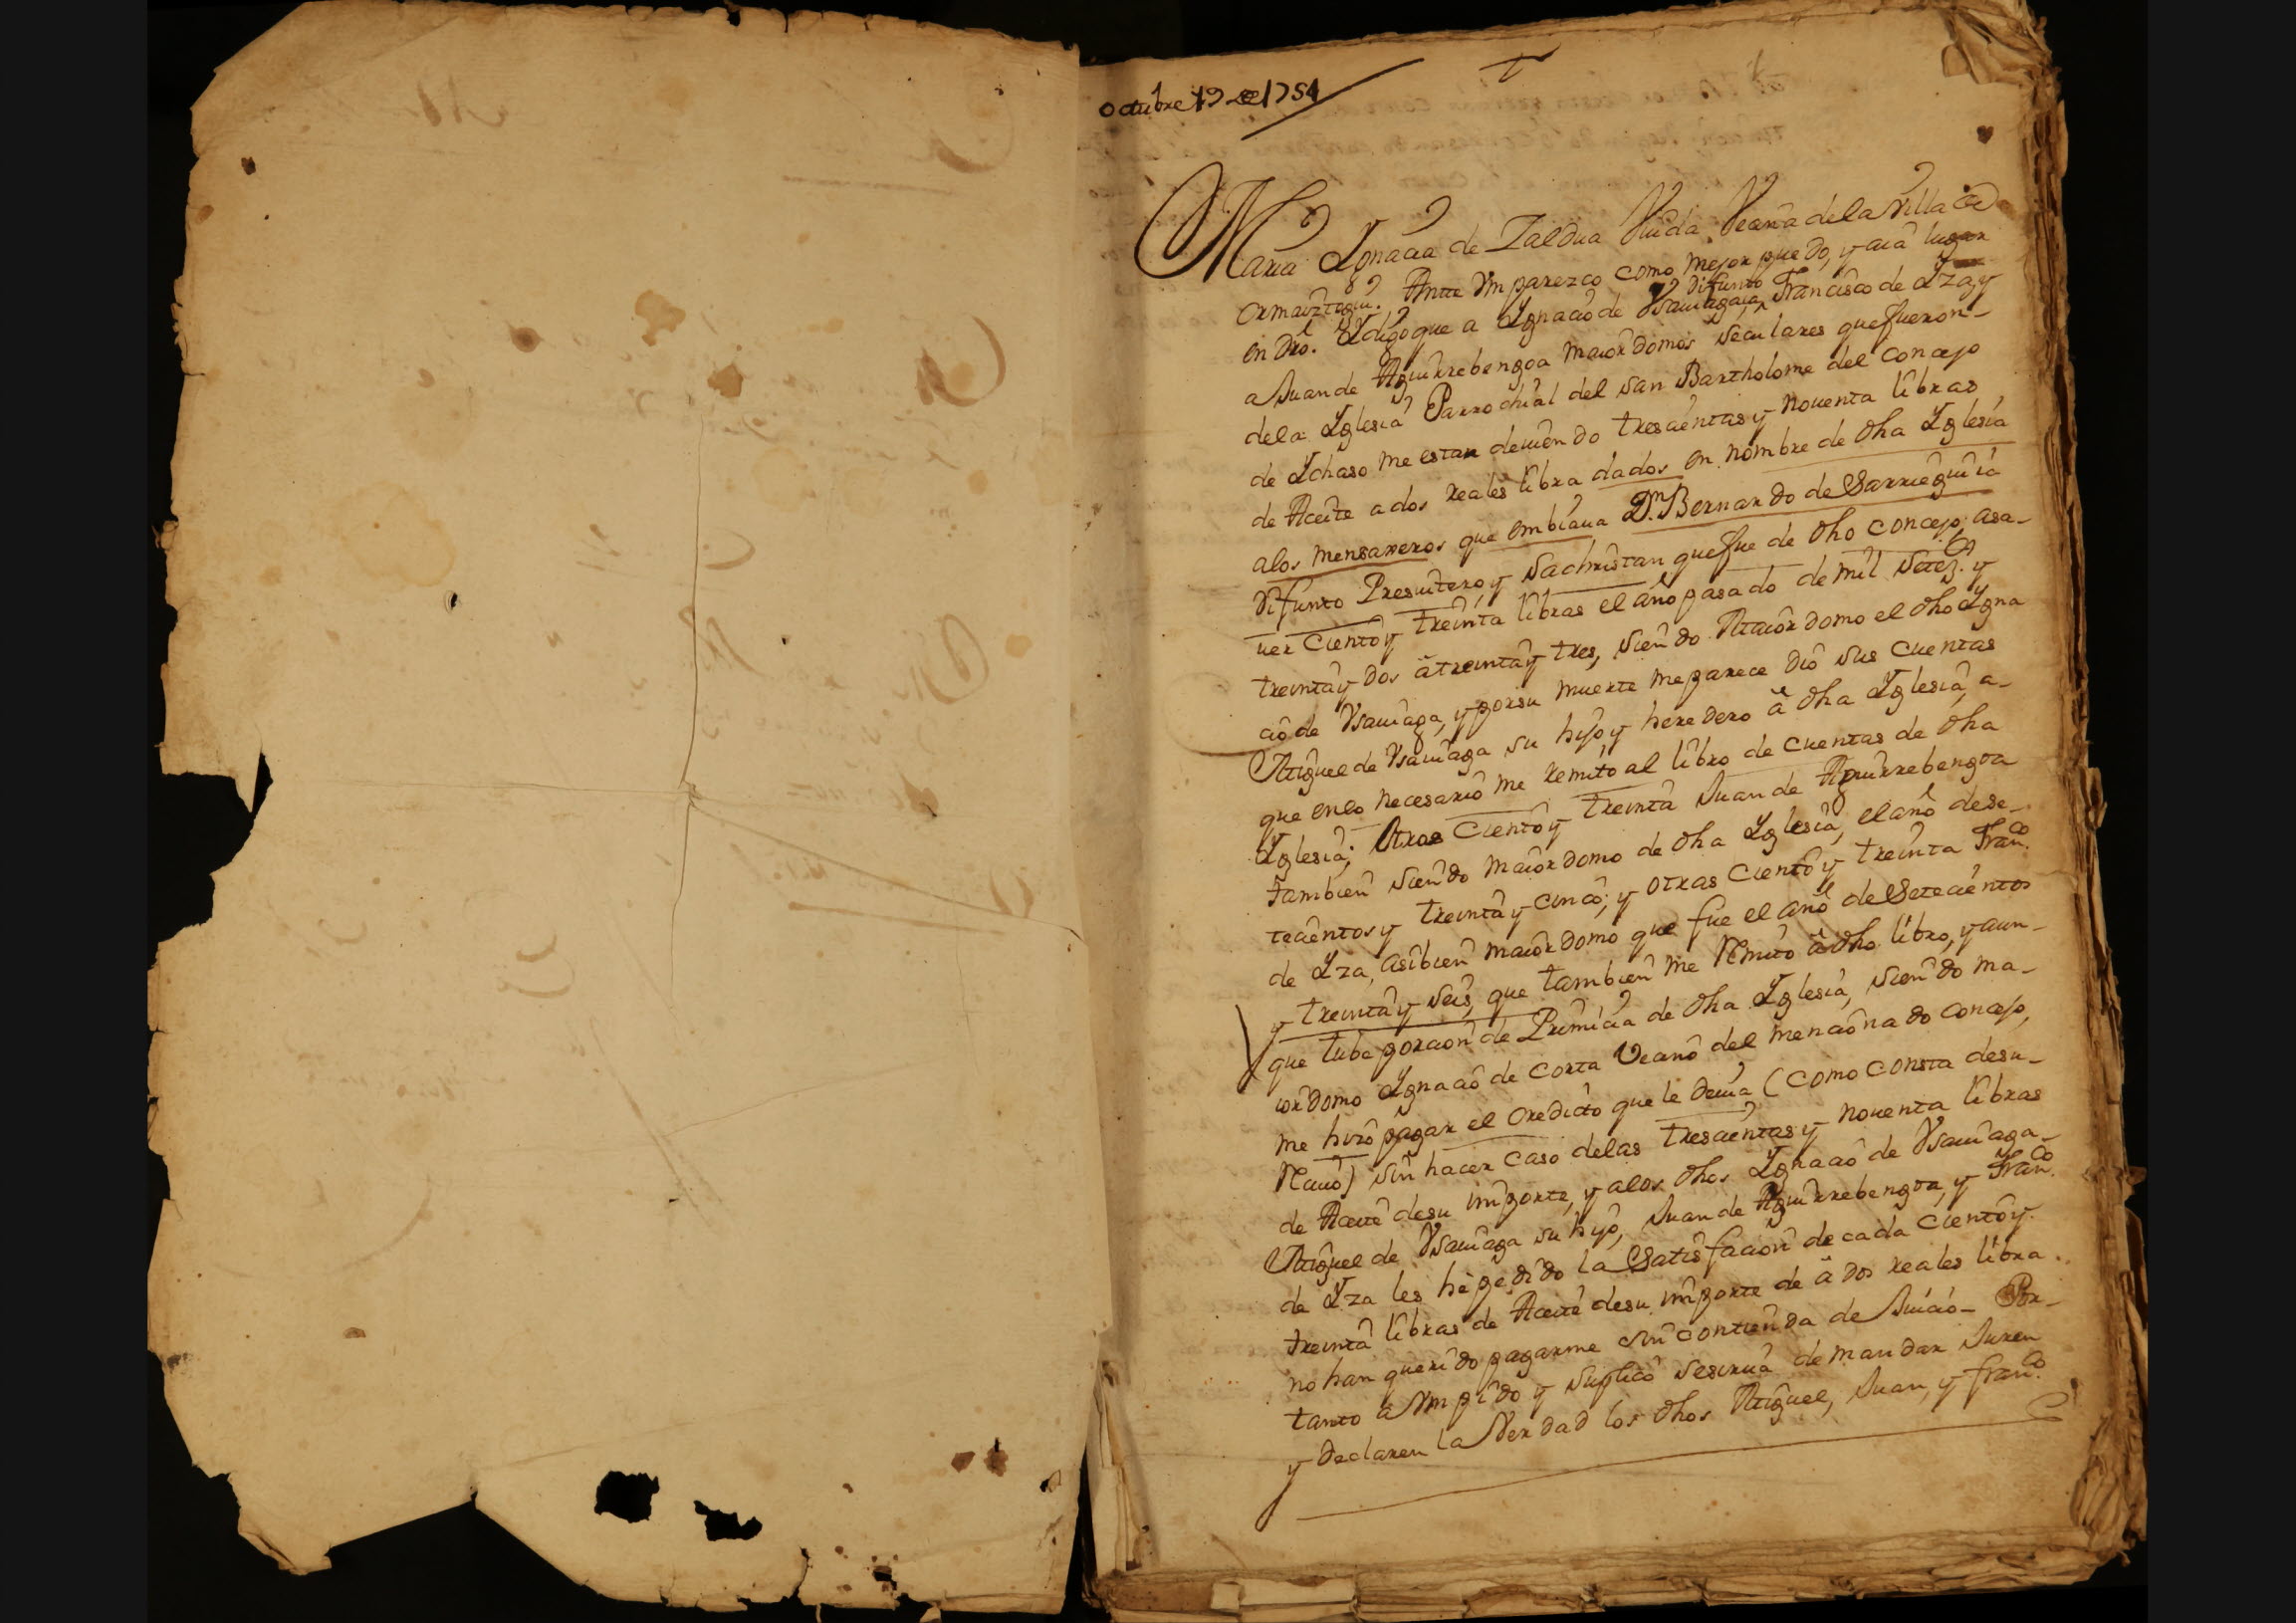 octubre 19 de 1754
Maria Ygnacia de Zaldua Viuda Vecina de la Villa de
ormaiztegui. Ante Vm parezco como mejor puedo, y aia lugar
en dro. Y digo que a Ygnacio de Vsauiaga difunto Francisco de Yza, y
a Juan de Aguirrebengoa maiordomos seculares que fueron-
dela Yglesia Parrochial del san Bartholome del concejo
de Ychaso me estan deuiendo trescientas y nouenta libras
de Aceite a dos reales libra dados en nombre de dha Yglesia
alos mensaxeros que embiaua Dn. Bernardo de Sarrieguia
difunto Presuitero, y sachristan que fue de dho concejo; asa-
uer ciento y treinta libras el año pasado de mil setez.os y
treinta y dos â treinta y tres, siendo Maiordomo el dho Ygna
cio de Vsauiaga, y por su muerte me parece dio sus cuentas
Miguel de Vsauiaga su hijo y heredero â dha Yglesia, a-
que enlo necesario me remito al libro de cuentas de dha
Yglesia; Otras ciento y treinta Juan de Aguirrebengoa
tambien siendo maiordomo de dha Yglesia, el año de se-
tecientos y treinta y cinco; y otras ciento y treinta Fran.co
de Yza, asibien maiordomo que fue el año de Setecientos
y treinta y seis, que tambien me Remito â dho libro, y aun-
que tube porcion de Primicia de dha Yglesia, siendo ma-
iordomo Ygnacio de Corta Vecino del mencionado concejo,
me hizo pagar el credito que le deuia (como consta desu-
Reciuo) sin hacer caso delas trescientas y nouenta libras
de Aceite desu importe, y alos dhos Ygnacio de Vsauiaga-
Miguel de Vsauiaga su hijo, Juan de Aguirrebengoa, y Fran.co
de Yza les he pedido la Satisfacion de cada ciento y
treinta libras de Aceite desu importe de â dos reales libra.
no han querido pagarme sin contienda de Juicio- Por-
tanto a Vm pido y suplico se sirua de mandar Juren
y declaren la Verdad los dhos Miguel, Juan, y fran.co